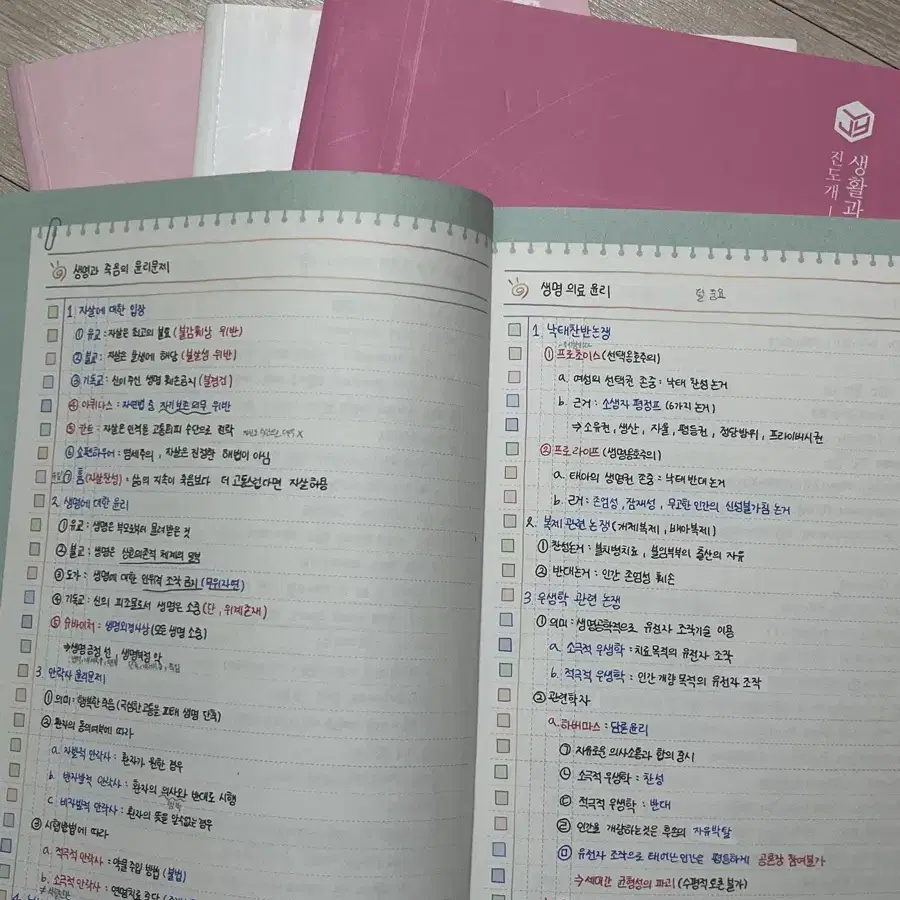 생활과
진도개
생명과 죽음의 윤리문제
1. 자살에 대한 입장
① 유교 : 자살은 최고의 불효 (불감훼상 위반)
② 불교 : 자살은 살생에 해당 (불살생 위반)
③ 기독교 : 신이 주신 생명 훼손금지 (불경건)
④ 아퀴나스 : 자연법 中 자기보존의무 위반
⑤ 칸트 : 자살은 인격을 고통회피 수단으로 전락
⑥ 쇼펜하우어 : 염세주의, 자살은 진정한 해법이 아님
⑦ 흄 (자살찬성) : 삶의 지속이 죽음보다 더 고통스럽다면 자살허용
2. 생명에 대한 윤리
① 유교 : 생명은 부모로부터 물려받은 것
② 불교 : 생명은 상호의존적 체계의 일부
③ 도가 : 생명에 대한 인위적 조작 금지 (무위자연)
④ 기독교 : 신의 피조물로서 생명은 소중 (단, 위계존재)
⑤ 슈바이처 : 생명외경사상 (모든 생명 소중)
⇒ 생명긍정 선, 생명부정 악
3. 안락사 윤리문제
① 의미 : 행복한 죽음 (극심한 고통을 피해 생명 단축)
② 환자의 동의여부에 따라
a. 자발적 안락사 : 환자가 원한 경우
b. 반자발적 안락사 : 환자의 의사와 반대로 시행
c. 비자발적 안락사 : 환자의 뜻을 알 수 없는 경우
③ 시행방법에 따라
a. 적극적 안락사 : 약물 주입 방법 (불법)
b. 소극적 안락사 : 연명치료 중단
생명 의료 윤리
덜 중요
1. 낙태찬반논쟁
① 프로초이스 (선택옹호주의)
a. 여성의 선택권 존중 : 낙태 찬성 논거
b. 근거 : 소생자 평정프 (6가지 논거)
⇒ 소유권, 생산, 자율, 평등권, 정당방위, 프라이버시권
② 프로라이프 (생명옹호주의)
a. 태아의 생명권 존중 : 낙태 반대 논거
b. 근거 : 존엄성, 잠재성, 무고한 인간의 신성불가침 논거
2. 복제 관련 논쟁 (개체복제, 배아복제)
① 찬성논거 : 불치병치료, 불임부부의 출산의 자유
② 반대논거 : 인간 존엄성 훼손
3. 우생학 관련 논쟁
① 의미 : 생명공학적으로 유전자 조작기술 이용
a. 소극적 우생학 : 치료목적의 유전자 조작
b. 적극적 우생학 : 인간 개량 목적의 유전자 조작
② 관련학자
a. 하버마스 : 담론윤리
㉠ 자유로운 의사소통과 합의 중시
㉡ 소극적 우생학 : 찬성
㉢ 적극적 우생학 : 반대
㉣ 인간을 개량하는것은 후손의 자유박탈
㉤ 유전자 조작으로 태어난 인간은 평등하게 공론장 참여불가
⇒ 세대간 균형성의 파괴 (수평적 토론 불가)